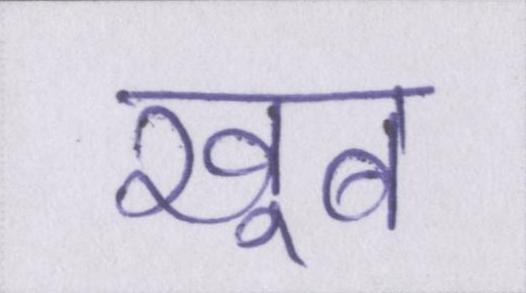 खूब